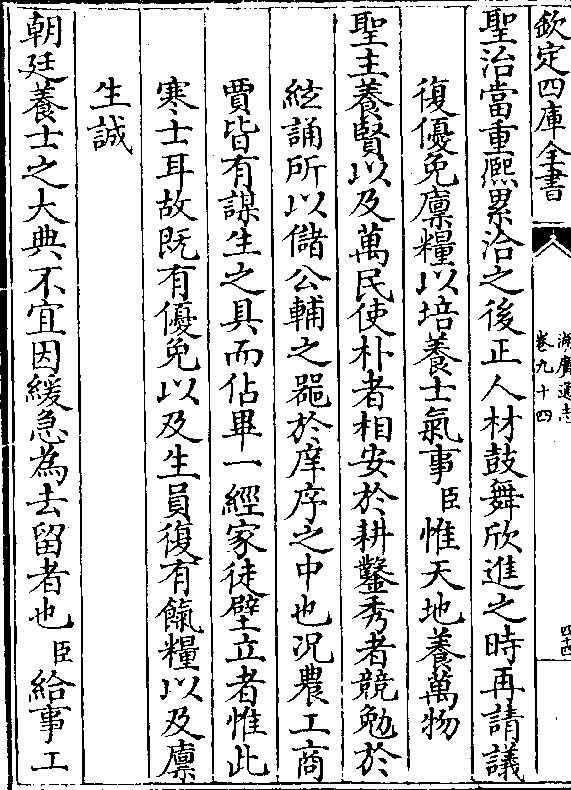 欽定四庫全書
湖廣通志
卷九十四
四十四
聖治當重熙累洽之後正人材鼓舞欣進之時再請議
復優免廩糧以培養士氣事臣惟天地養萬物
聖主養賢以及萬民使朴者相安於耕鑿秀者競勉於
絃誦所以儲公輔之器於庠序之中也况農工商
賈皆有謀生之具而佔畢一經家徒壁立者惟此
寒士耳故既有優免以及生員復有餼糧以及廩
生誠
朝廷養士之大典不宜因緩急為去留者也臣給事工